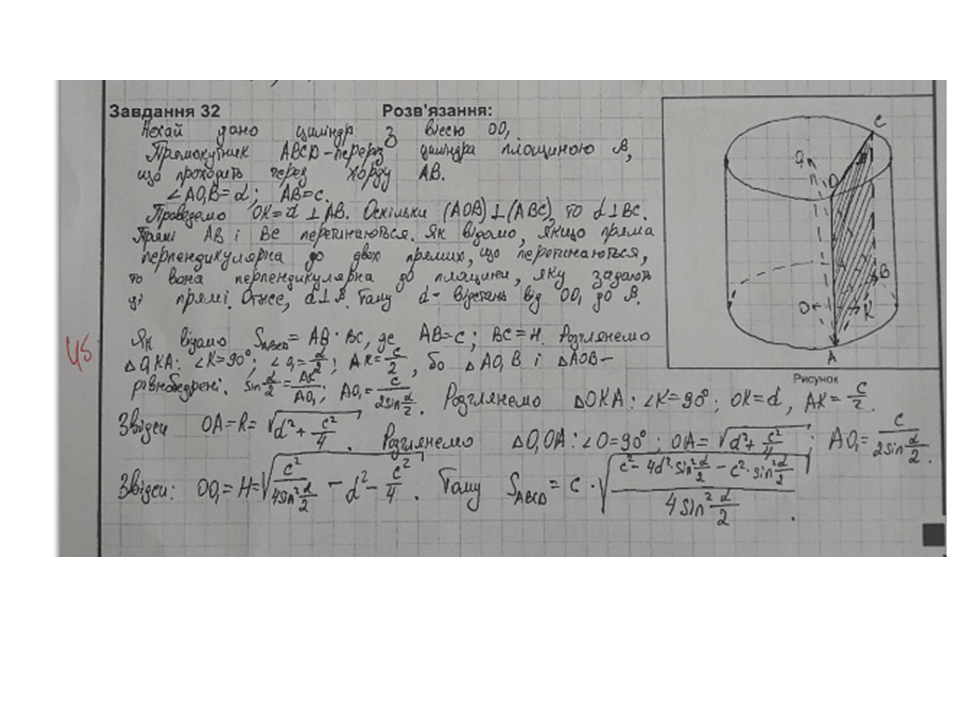 Завдання 32 Розв'язання:
Нехай дано циліндр з віссю OO₁
Прямокутник ABCD – переріз циліндра площиною β,
що проходить через хорду AB.
∠AO₁B = α; AB = c.
Проведемо OK = d ⊥ AB. Оскільки (AOB) ⊥ (ABC), то d ⊥ BC.
Прямі AB і BC перетинаються. Як відомо, якщо пряма
перпендикулярна до двох прямих, що перетинаються,
то вона перпендикулярна до площини, яку задають
ці прямі. Отже, d ⊥ β. Тому d – відстань від OO₁ до β.
Як відомо S_ABCD = AB · BC, де AB = c; BC = H. Розглянемо
ΔO₁KA: ∠K = 90°; ∠O₁ = α/2; AK = c/2, бо ΔAO₁B і ΔAOB –
рівнобедрені. sin α/2 = AK/AO₁; AO₁ = c/(2sin α/2). Розглянемо ΔOKA: ∠K = 90°; OK = d, AK = c/2.
Звідси OA = R = √(d² + c²/4). Розглянемо ΔO₁OA: ∠O = 90°; OA = √(d² + c²/4); AO₁ = c/(2sin α/2).
Звідси: OO₁ = H = √(c²/(4sin² α/2) – d² – c²/4). Тому S_ABCD = c · √((c² – 4d² · sin² α/2 – c² · sin² α/2)/(4 sin² α/2)).
4б
C
O₁
D
B
O
K
A
Рисунок